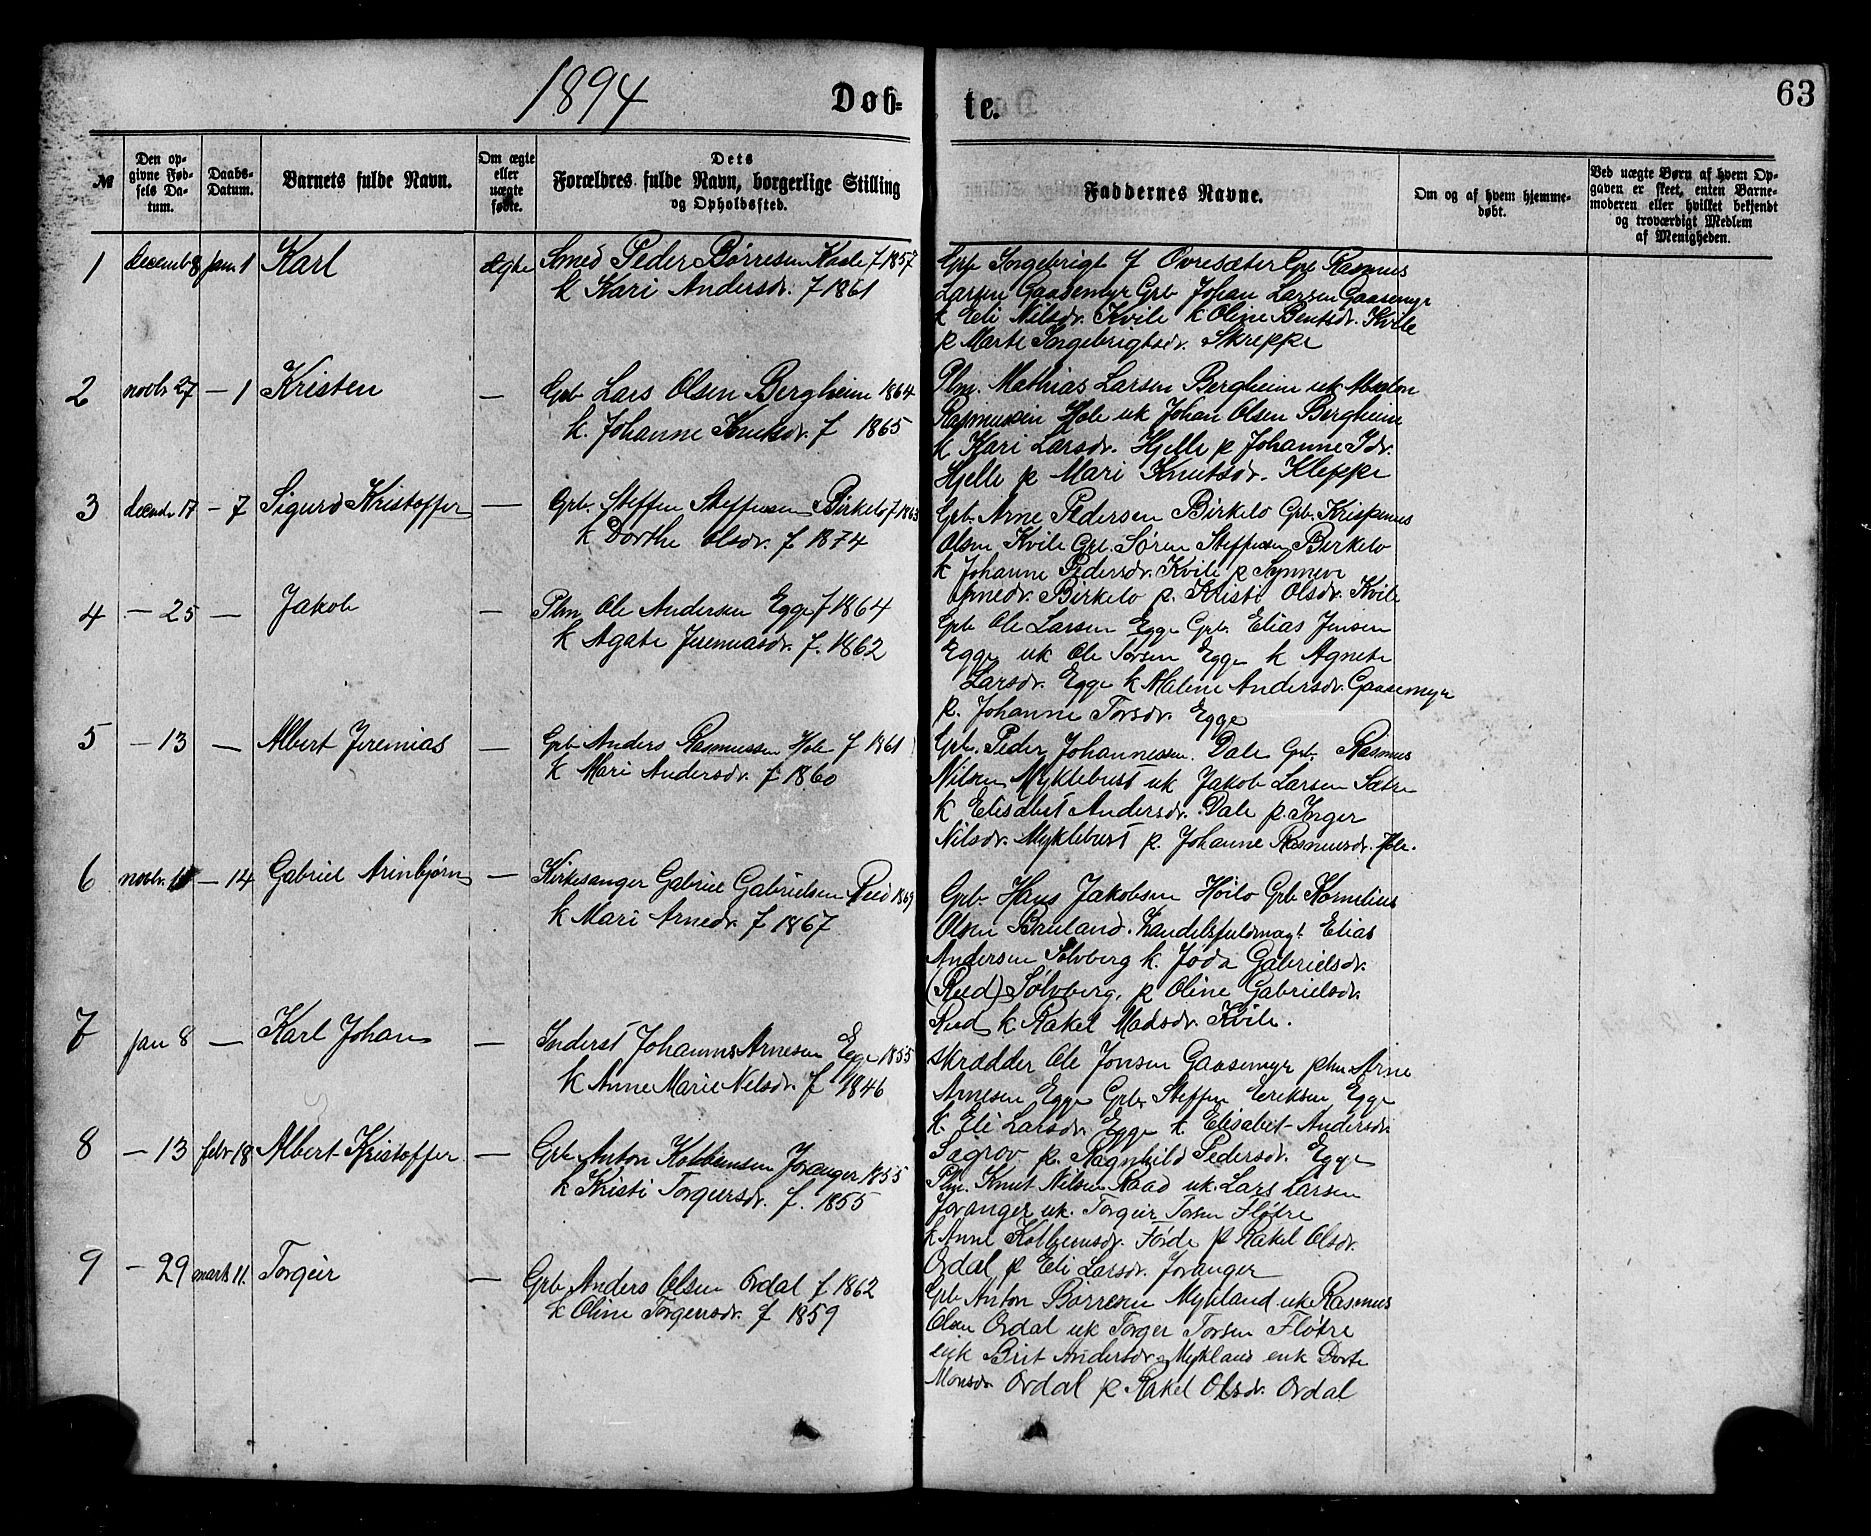 1894
Døb=
te.
63
№
Den op-
givne Fød-
sels Da-
tum.
Daabs-
Datum.
Barnets fulde Navn.
Om ægte
eller
uægte
fødte.
Dets
Forældres fulde Navn, borgerlige Stilling
og Opholdssted.
Faddernes Navne.
Om og af hvem hjemme-
døbt.
Ved uægte Børn af hvem Op-
gaven er skeet, enten Barne-
moderen eller hvilket bekjendt
og troværdigt Medlem
af Menigheden.
1 decemb 8 jan 1 Karl ægte Smed Peder Børresen Kvale f 1857
k Kari Andersdr. f 1861
Grb Ingebrigt J Øvresæter Grb Rasmus
Larsen Gaasemyr Grb Johan Larsen Gaasemyr
k Eli Nilsdr. Kvile k Oline Bentsdr. Kvile
p Marte Ingebrigtsdr. Skreppe
2 novbr 27 — 1 Kristen — Grb Lars Olsen Bergheim 1864
k. Johanne Knutsdr. f 1865
Plm. Mathias Larsen Bergheim uk Absalon
Rasmussen Hole uk Johan Olsen Bergheim
k Kari Larsdr. Hjelle p Johanne Idr.
Hjelle p Mari Knutsdr. Kleppe
3 decmbr 17 — 7 Sigurd Kristoffer — Grb. Steffen Steffensen Birkelo f 1863
k Dorthe Olsdr. f 1874
Grb. Arne Pedersen Birkelo Grb. Krispinus
Olsen Kvile Grb. Søren Steffensen Birkelo
k Johanne Pedersdr. Kvile p Synneve
Arnedr. Birkelo p. Kristi Olsdr. Kvile
4 — 25 — Jakob — Plm. Ole Andersen Egge f 1864
k Agate Jeremiasdr. f. 1862
Grb Ole Larsen Egge Grb. Elias Jensen
Egge uk Ole Torsen Egge k Agnete
Larsdr. Egge k Malene Andersdr. Gaasemyr
p. Johanne Torsdr. Egge
5 — 13 — Albert Jeremias — Grb Anders Rasmussen Hole f 1861
k Mari Andersdr. f. 1860
Grb. Peder Johannessen. Dale Grb. Rasmus
Nilsen Myklebust uk Jakob Larsen Sætre
k Elisabet Andersdr. Dale p. Inger
Nilsdr. Myklebust p. Johanne Rasmusdr. Hole.
6 novbr. — 14 Gabriel Arinbjørn — Kirkesanger Gabriel Gabrielsen Reed 1869
k Mari Arnedr. f 1867
Grb. Hans Jakobsen Høilo Grb Kornelius
Olsen Bruland. Handelsfuldmægt. Elias
Andersen Sølvberg k. Joda Gabrielsdr.
(Reed) Sølvberg, p Oline Gabrielsdr.
Reed k Rakel Madsdr. Kvile.
7 jan 8 — Karl Johan — Inderst Johannes Arnesen Egge 1855
k Anne Marie Nelsdr. f 1846
Skrædder Ole Jonsen Gaasemyr plm Arne
Arnesen Egge Grb. Steffen Eriksen Egge
k. Eli Larsdr. Egge k. Elisabet Andersdr.
Sægrov p. Ragnhild Pedersdr. Egge
8 — 13 febr 18 Albert Kristoffer — Grb. Anton Kolbensen Joranger 1855
k Kristi Torgeirsdr. f. 1855
Plm. Knut Nilsen Raad uk. Lars Larsen
Joranger uk. Torgeir Torsen Fløtre
k Anne Kolbeinsdr. Førde p Rakel Olsdr.
Ordal p Eli Larsdr. Joranger
9 — 29 marts 11. Torgeir — Grb Anders Olsen Ordal f 1862
k Oline Torgersdr. f 1859
Grb Anton Børresen Mykland uk Rasmus
Olsen Ordal uk Torger Torsen Fløtre
enk Brit Andersdr. Mykland enk Dorte
Monsdr Ordal p Rakel Olsdr. Ordal